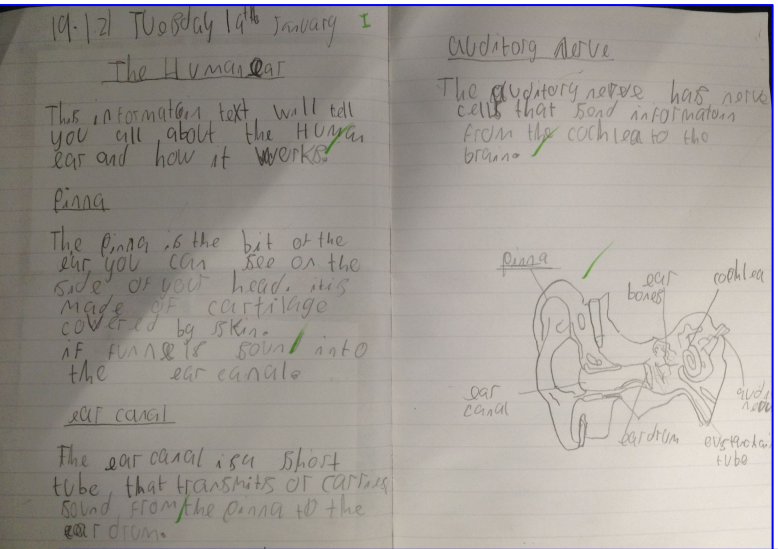 19.1.21 Tuesday 19th January I
The Human ear
This information text will tell
you all about the Human
ear and how it works.
Pinna
The Pinna is the bit of the
ear you can see on the
side of your head. it is
made of cartilage
covered by skin.
if funnels sound into
the ear canal.
ear canal
The ear canal is a short
tube, that transmits or carries
sound, from the pinna to the
ear drum.
auditory nerve
The auditory nerve has nerve
cells that send informatoin
from the cochlea to the
brain.
Pinna
ear
bones
cochlea
ear
canal
eardrum
tube